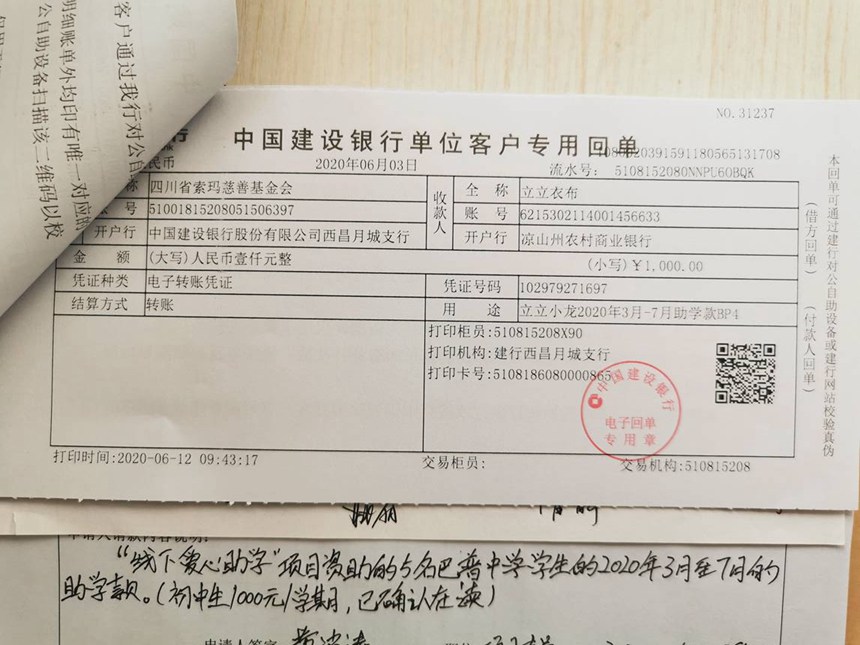 客户通过我行对公自
明细账单外均印有唯一对应的
公自助设备扫描该二维码以校
NO.31237
中国建设银行单位客户专用回单
民币
2020年06月03日
流水号: 5108152080NNPU6OBQK
称 四川省索玛慈善基金会
收款人
全 称 立立衣布
号 51001815208051506397
账 号 6215302114001456633
开户行 中国建设银行股份有限公司西昌月城支行
开户行 凉山州农村商业银行
金 额 (大写)人民币壹仟元整 (小写)¥1,000.00
凭证种类 电子转账凭证
凭证号码 102979271697
结算方式 转账
用 途 立立小龙2020年3月-7月助学款BP4
打印柜员:510815208X90
打印机构:建行西昌月城支行
打印卡号:5108186080000865
中国建设银行
电子回单
专用章
打印时间:2020-06-12 09:43:17
交易柜员:
交易机构:510815208
(借方回单) (付款人回单)
本回单可通过建行对公自助设备或建行网站校验真伪
“线下爱心助学”项目资助的5名巴普中学学生的2020年3月至7月的
助学款。(初中生1000元/学期,已确认在读)